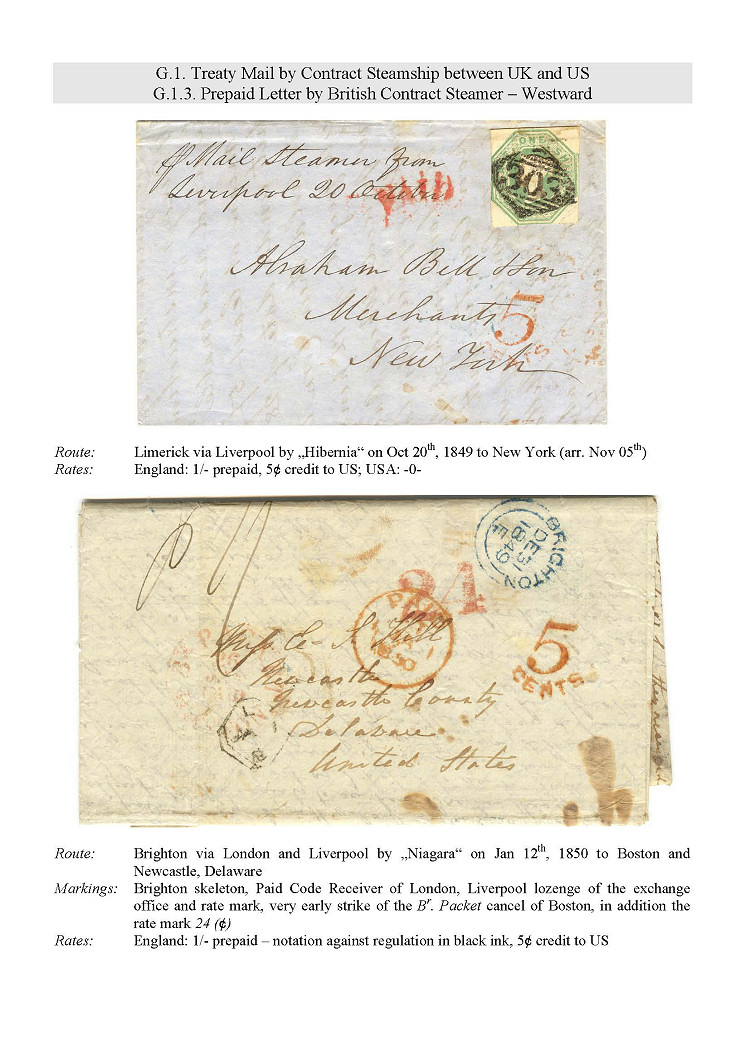 G.1. Treaty Mail by Contract Steamship between UK and US
G.1.3. Prepaid Letter by British Contract Steamer – Westward
Mail Steamer from
Liverpool 20 October
PAID
ONE
303
Abraham Bell & Son
Merchants
New York
5
CENTS
Route: Limerick via Liverpool by „Hibernia“ on Oct 20th, 1849 to New York (arr. Nov 05th)
Rates: England: 1/- prepaid, 5¢ credit to US; USA: -0-
BRIGHTON
DE 31
1849
F
24
PAID
1850
5
CENTS
Newcastle
Newcastle County
Delaware
United States
L
Route: Brighton via London and Liverpool by „Niagara“ on Jan 12th, 1850 to Boston and
Newcastle, Delaware
Markings: Brighton skeleton, Paid Code Receiver of London, Liverpool lozenge of the exchange
office and rate mark, very early strike of the Br. Packet cancel of Boston, in addition the
rate mark 24 (¢)
Rates: England: 1/- prepaid – notation against regulation in black ink, 5¢ credit to US